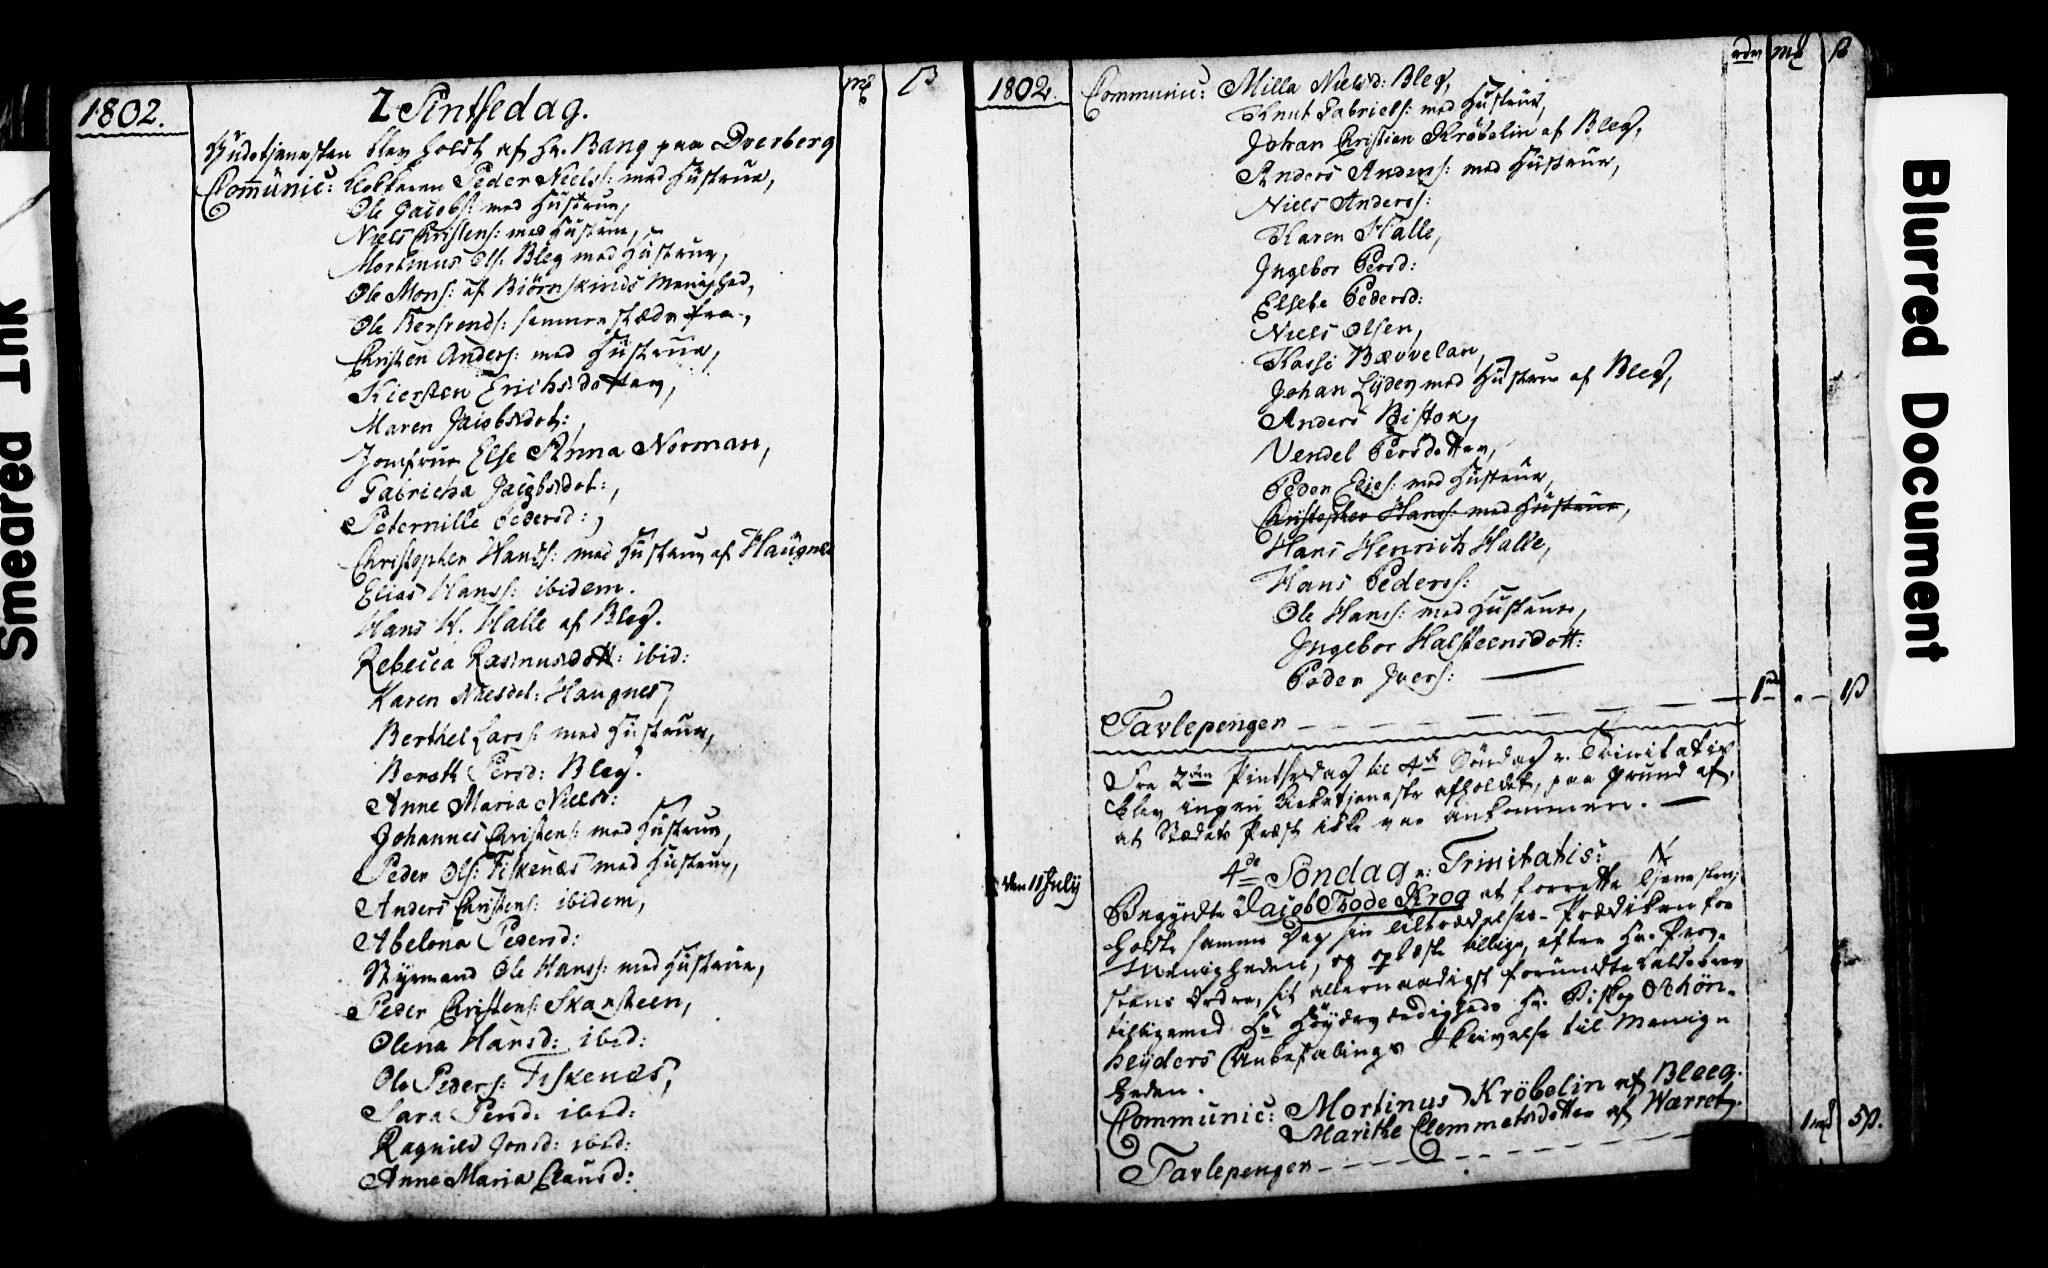 Smeared Ink
1802.
mk ß
2 Pintsedag.
Gudstjenesten blev holdt af Hr. Bang paa Dverberg
Com̄unic: Klokkeren Peder Niels: med Hustrue,
Ole Jacobs: med Hustrue,
Niels Christens: med Hustrue,
Mortinus Ols: Bleg med Hustrue,
Ole Mons: af Biörnskinds Menighed,
Ole Berhends: sammesteds fra,
Christen Anders: med Hustrue,
Kiersten Erichsdatter,
Maren Jacobsdot:,
Jomfrue Else Anna Norman,
Fabricha Jacobsdot:,
Peternille Pedersd:,
Christopher Hanss: med Hustrue af Haugnes
Elias Hanss: ibidem.
Hans H. Halle af Bleg.
Rebecca Rasmusdott: ibid:
Karen Nilsdot: Haugnes,
Berthel Larss: med Hustrue,
Bereth Persd: Bleg.
Anne Maria Nielsd:
Johannes Christens: med Hustrue,
Peder Ols: Fiskenæs med Hustrue,
Anders Christens: ibidem,
Abelona Pedersd:
Styrmand Ole Hanss: med Hustrue,
Peder Christens: Skarsteen,
Olena Hansd: ibid:
Ole Peders: Fiskenæs,
Sara Persd: ibid:
Ragnild Jonsd: ibid:
Anne Maria Clausd:
1802.
rdr mk ß
Communic: Milla Nielsd: Bleg,
Knut Gabriels: med Hustrue,
Johan Christian Kröbelin af Bleg,
Anders Anders: med Hustrue,
Niels Anderss:
Karen Halle,
Ingebor Persd:
Elsebe Pedersd:
Niels Olsen,
Kassi Bævvelan,
Johan Lyder med Hustrue af Bleg,
Anders Bistox,
Vendel Persdatter,
Peder Elies: med Hustrue,
Christopher Hanss: med Hustrue,
Hans Henrich Halle,
Hans Pederss:
Ole Hanss: med Hustrue,
Ingebor Halsteensdott:
Peder Ivers:
Tavlepengen 1 " 1ß
Fra 2den Pintsedag til 4de Söndag e. Trinitatis
blev ingen Kirketjeneste afholdet, paa grund af,
at Stedets Præst ikke var ankommen.
4de Söndag e: Trinitatis:
den 11 July
Begyndte Jacob Thode Krog at forrette Tjenesten;
holdte samme Dag sin Tiltrædelses-Prædiken for
Menigheden, og oplæste tillige, efter Hr. Prov-
stens Ordre, sit allernaadigst forundte Kaldsbrev
tilligemed Hs Höyærværdigheds Hr. Biskop Schön-
heyders Anbefalings Skrivelse til Menig-
heden.
Communic: Mortinus Kröbelin af Bleeg.
Marithe Clemmetsdatter af Værret.
Tavlepengen 1mk 5ß.
Blurred Document